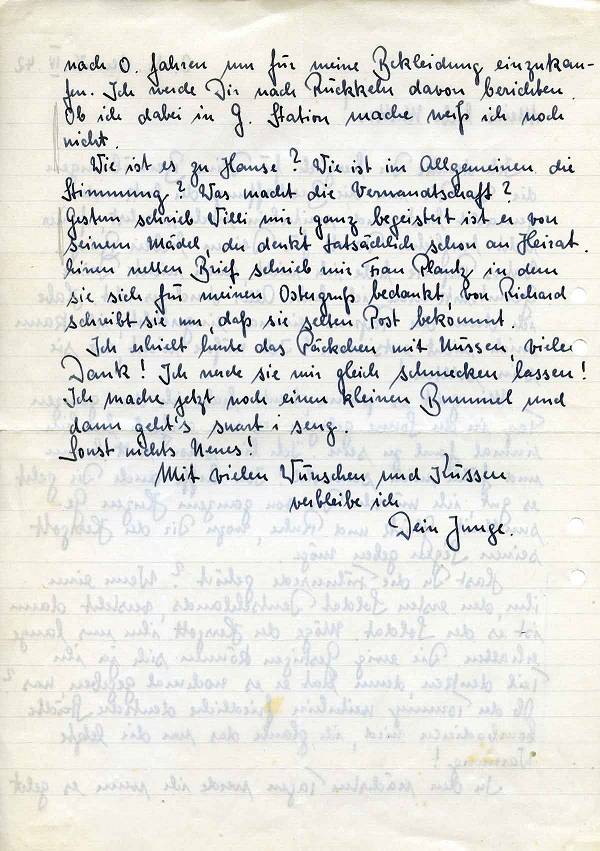 nach O. fahren um für meine Bekleidung einzukau-
fen. Ich werde Dir nach Rückkehr davon berichten.
Ob ich dabei in G. Station mache weiß ich noch
nicht.
Wie ist es zu Hause? Wie ist im Allgemeinen die
Stimmung? Was macht die Verwandtschaft?
Gestern schrieb Willi mir, ganz begeistert ist er von
seinem Mädel, der denkt tatsächlich schon an Heirat.
Einen netten Brief schrieb mir Frau Plantz in dem
sie sich für meinen Ostergruß bedankt, von Richard
schreibt sie nur, daß sie selten Post bekommt.
Ich erhielt heute das Päckchen mit Nüssen, vielen
Dank! Ich werde sie mir gleich schmecken lassen!
Ich mache jetzt noch einen kleinen Bummel und
dann geht's snart i seng.
Sonst nichts Neues!
Mit vielen Wünschen und Küssen
verbleibe ich
Dein Junge.